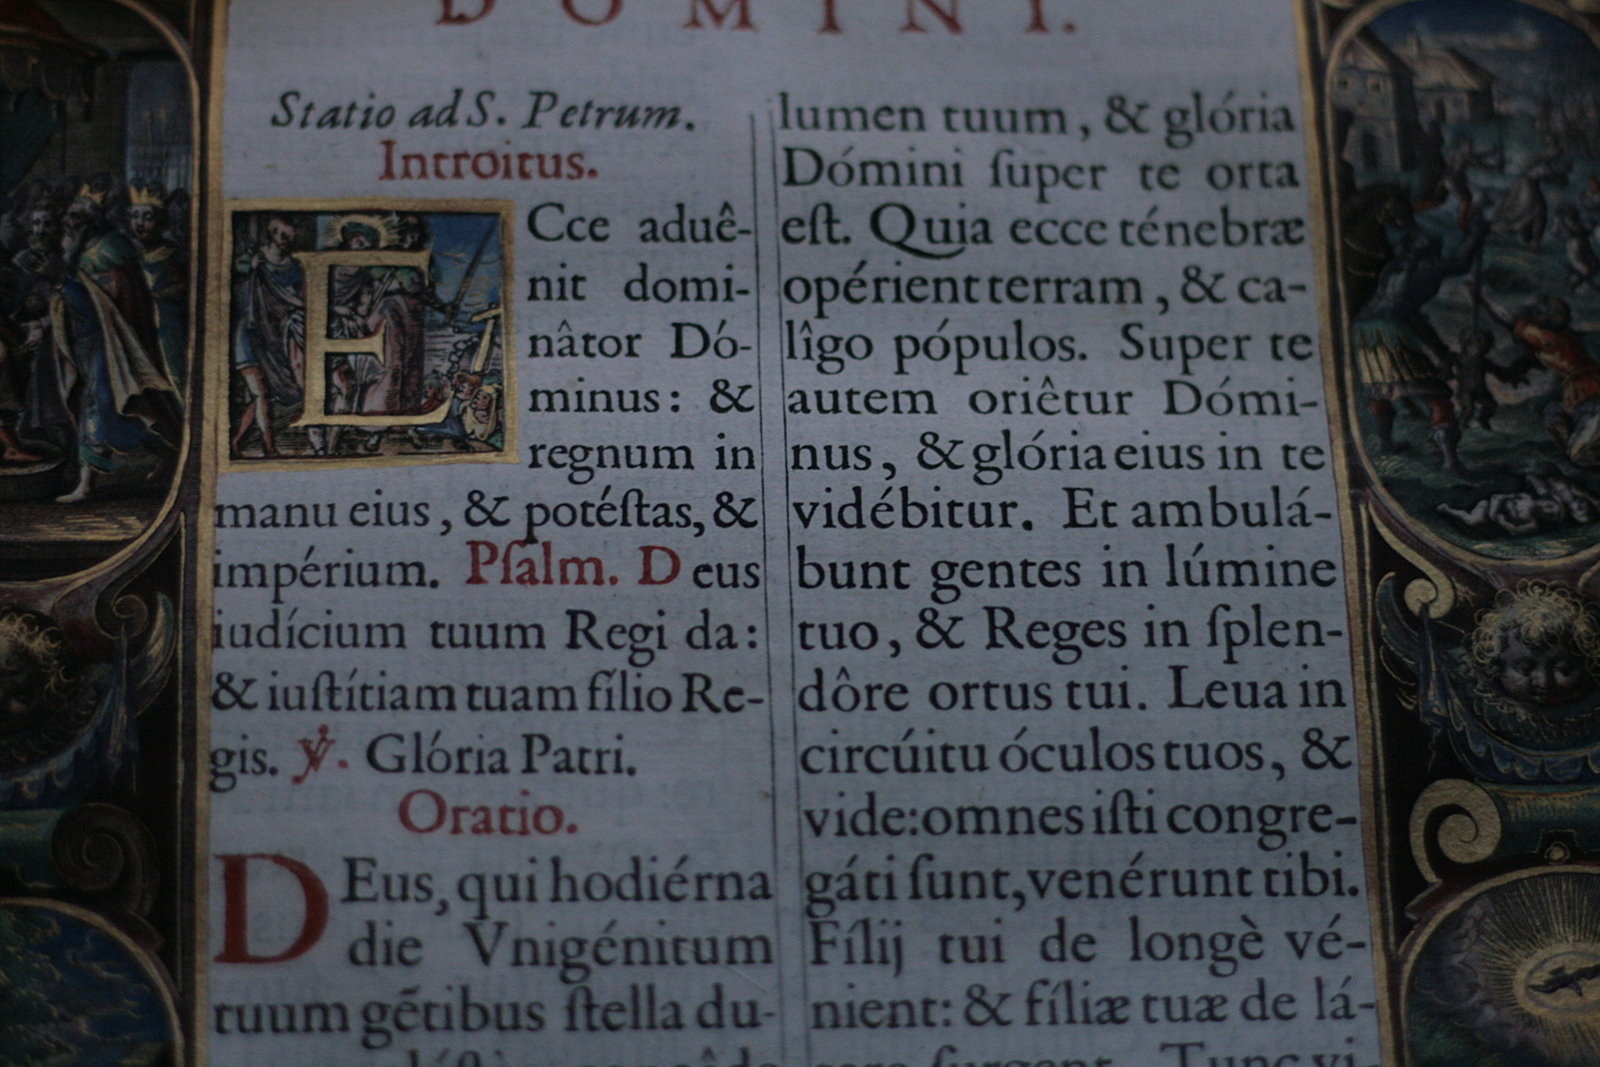 DOMINI.
Statio ad S. Petrum.
Introitus.
ECce aduê-
nit domi-
nâtor Dó-
minus: &
regnum in
manu eius, & potéſtas, &
impérium. Pſalm. Deus
iudícium tuum Regi da:
& iuſtítiam tuam fílio Re-
gis. ℣. Glória Patri.
Oratio.
DEus, qui hodiérna
die Vnigénitum
tuum gẽtibus ſtella du-
lumen tuum, & glória
Dómini ſuper te orta
eſt. Quia ecce ténebræ
opérient terram, & ca-
lîgo pópulos. Super te
autem oriêtur Dómi-
nus, & glória eius in te
vidébitur. Et ambulá-
bunt gentes in lúmine
tuo, & Reges in ſplen-
dôre ortus tui. Leua in
circúitu óculos tuos, &
vide: omnes iſti congre-
gáti ſunt, venérunt tibi.
Fílij tui de longè vé-
nient: & fíliæ tuæ de lá-
ſurgent. Tunc vi-